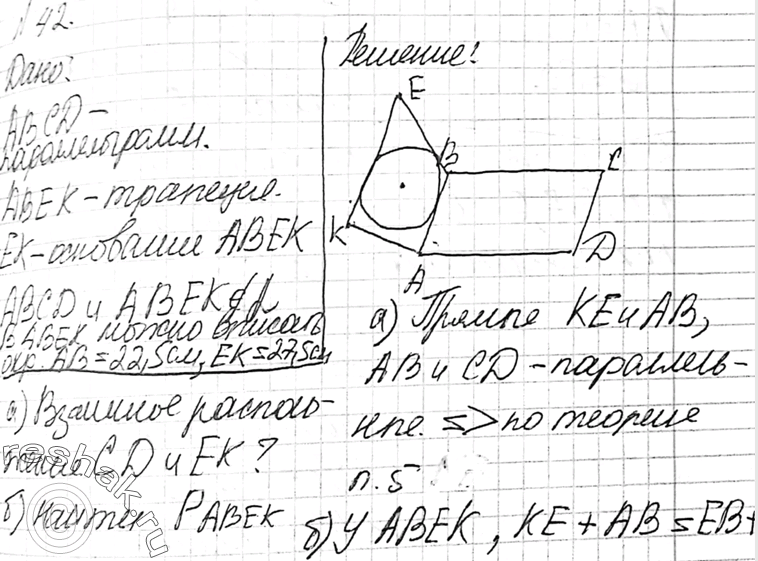 N 42.
Дано:
ABCD –
параллелограмм.
ABEK – трапеция.
EK – основание ABEK
ABCD и ABEK ⊄ α
В ABEK можно вписать
окр. AB = 22,5см, EK = 27,5см
а) Взаимное распол-
жение CD и EK?
б) найти P ABEK
Решение:
E
B
C
K
A
D
а) Прямые KE и AB,
AB и CD – параллель-
ные. => по теореме
п. 5
б) У ABEK, KE + AB = EB +
reshak.ru